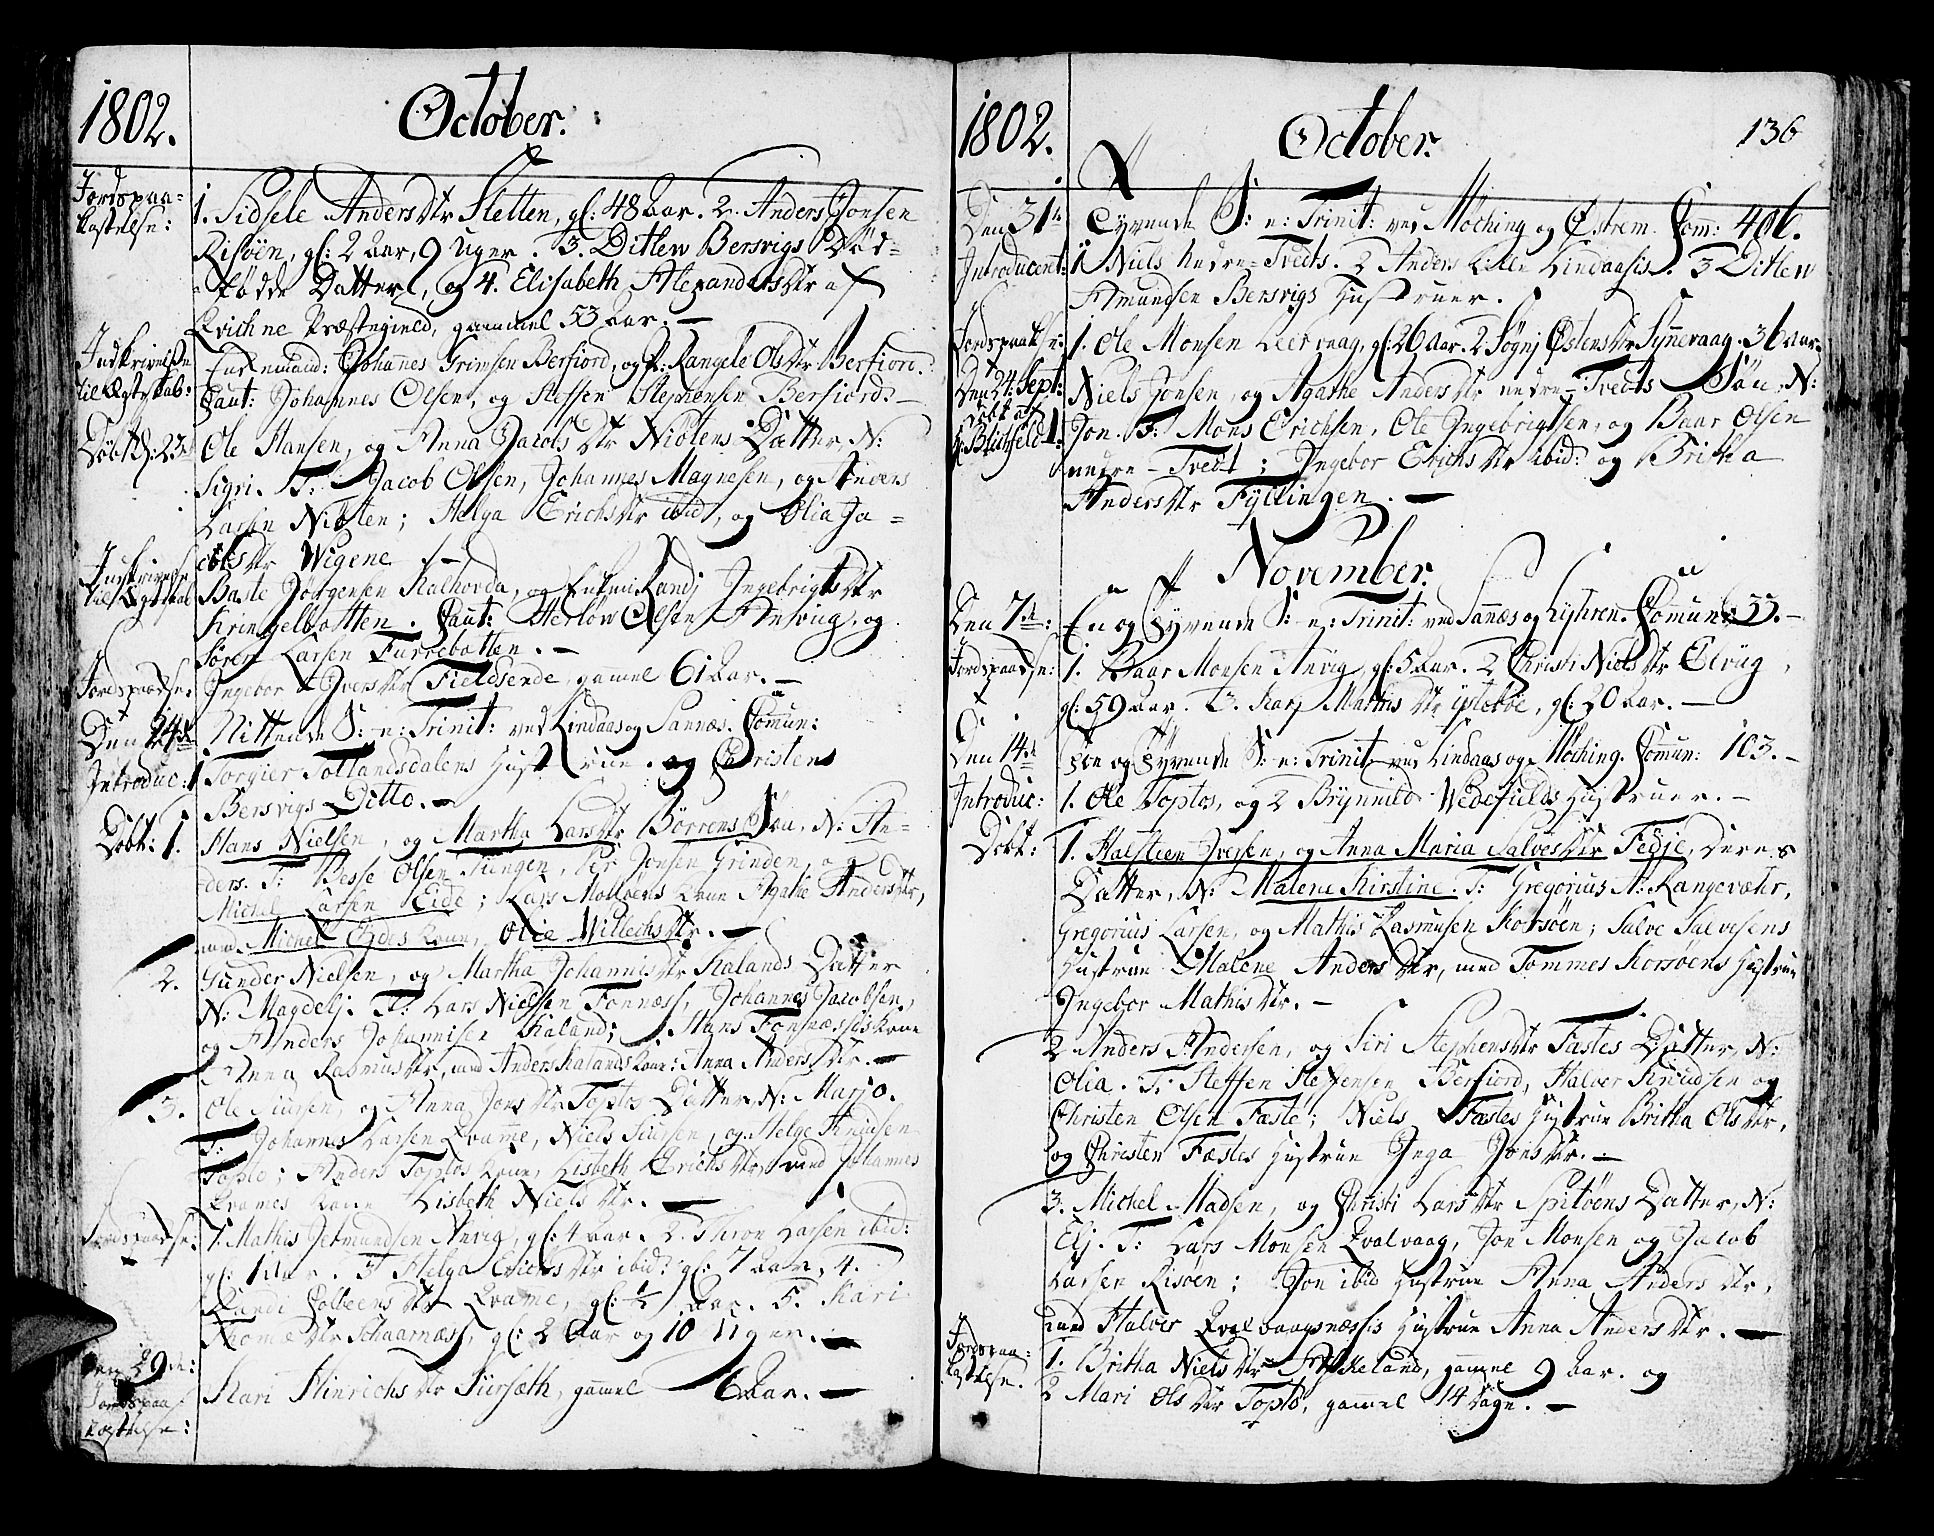 1802.
October.
Jordspaa=
kastelse:
1. Sidsele Andersdtr Sletten, gl: 48 Aar. 2. Anders Jonsen
Risöen, gl: 2 Aar, 9 Uger. 3. Ditlew Bersvigs Död=
födde Datter, og 4. Elisabeth Alexandersdtr af
Evichne Præstegield, gammel 53 Aar. —
Indskrivelse
til Ægteskab:
Enkemand: Johannes Grimsen Berfiord, og P: Rangele Olsdtr Berfiord.
Caut: Johannes Olsen, og Steffen Stephensen Berfiord. —
Döbt d: 23de
Ole Hansen, og Anna Jacobsdtr Nibtens Datter, N:
Sigri. T: Jacob Olsen, Johannes Magnesen, og Anders
Larsen Nibten; Helga Erichsdtr ibid, og Olia Ja=
cobsdtr Wigene. —
Indskrivelse
til Ægteskab
Baste Jörgensen Kalhovda, og Enken Randj Ingebrigtsdtr
Kringelbotten. Caut: Herlow Olsen Anvug, og
Sören Larsen Furrebotten. —
Jordspaadse:
Ingebor Iversdtr Fieldsende, gamel 61 Aar. —
Den 24de
Nittende S: e: Trinit: ved Lindaas og Sannæs. Comun:
Introduc: 1
Torgier Totlandsdalens Hustrue. og Christens
Bersvigs Ditto. —
Döbt: 1.
Hans Nielsen, og Martha Larsdtr Börrens Sön, N: An=
ders. T: Besse Olsen Tungen, Per Jonsen Grinden, og
Michel Larsen Eide; Lars Moltöens Kone Agathe Andersdtr,
med Michel Eides Kone, Olie Willechsdtr. —
2. Gunder Nielsen, og Martha Johannisdtr Kalands Datter
N: Magdelj. T: Lars Nielsen Fonnæss, Johannes Jacobsen,
og Anders Johannisen Kaland; Hans Fonnæssis Kone
Anna Rasmusdtr, med Anders Kalands Kone: Anna Andersdtr. —
3. Ole Siursen, og Anna Jonsdtr Toptos Datter, N: Marjo.
T: Johannes Larsen Qvamme, Niels Siursen, og Helge Knudsen
Topto; Anders Toptos Kone, Lisbeth Erichsdtr, med Johannes
Qvames Kone Lisbeth Nielsdtr. —
Jordspaadse:
1. Mathis Jetmundsen Anvig, gl: 4 Aar. 2. Thron Larsen ibid:
gl: 1 Aar. 3 Helga Erichsdtr ibid: gl: 7 Aar, 4.
Randi Colbeensdtr Qvame, gl: ½ Aar. 5. Kari
Thomesdtr Schaarnæss, gl: 2 Aar og 10 Uger. —
Den 29de:
Jordspaa
kastelse:
Kari Hinrichsdtr Siursæth, gamel 6 Aar. —
1802.
October.
136
Den 31te
Tyvende S: e: Trinit: ved Möching og Östrem. Com: 406.
Introducert:
1 Niels Nedre-Tvedts. 2 Anders Lille Lindaasis. 3 Ditlew
Amundsen Bersvigs Hustruer.
Jordspaakse:
1. Ole Monsen Leervaag, gl: 26 Aar. 2 Sögnj Östensdtr Synnevaag. 36 Aar.
Den 24 Sept:
döbt af
Hr Blichfeldt:
Niels Jonsen, og Agathe Andersdtr nedre-Tvedts Sön, N:
Jon. T: Mons Erichsen, Ole Ingebrigtsen, og Baar Olsen
nedre-Tvedt; Ingebor Erichsdtr ibid: og Britha
Andersdtr Fyllingen. —
November.
Den 7de:
En og Tyvende S: e: Trinit: ved Sannæs og Lyhren. Comun: 33. —
Jordspaadse:
1. Baar Monsen Anvig, gl: 5 Aar. 2 Christi Nielsdtr Elvug,
gl: 59 Aar. 3. Karj Mathisdtr Ystebbe, gl: 20 Aar. —
Den 14de
Toe og Tyvende S: e: Trinit: ved Lindaas og Möching. Comun: 103. —
Introduc:
1. Ole Toptos, og 2 Brynnild Wedefields Hustruer. —
Döbt:
1. Halsteen Iversen, og Anna Maria Salvesdtr Fedje, deres
Datter, N: Malene Kirstine. T: Gregorius N: Rangevæhr,
Gregorius Larsen, og Mathis Rasmusen Korsöen; Salve Salvesens
Hustrue Malene Andersdtr, med Tommes Korsöens Hustrue
Ingebor Mathisdtr. —
2 Anders Andersen, og Siri Stephensdtr Fæstes Datter, N:
Olia. T: Steffen Steffensen Berfiord, Halver Knudsen og
Christen Olsen Fæste; Niels Fæstes Hustrue Britha Olsdtr,
og Christen Fæstes Hustrue Inga Jonsdtr. —
3. Michel Madsen, og Christi Larsdtr Spitöens Datter, N:
Elj. T: Lars Monsen Qvalvaag, Jon Monsen og Jacob
Larsen Risöen; Jon ibid Hustrue Anna Andersdtr,
med Halver Qvalvaagsnæssis Hustrue Anna Andersdtr. —
Jordspaa=
kastelse.
1. Britha Nielsdtr Askeland, gamel 9 Aar. og
2 Mari Olsdtr Topto, gamel 14 Dage. —